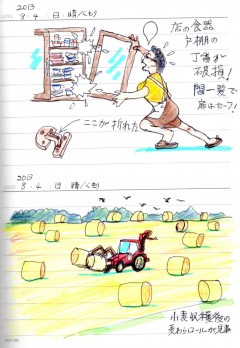 2013
8・4・日・晴/くもり
店の食器
戸棚の
丁番が
破損！
間一髪で
扉はセーフ！
ここが折れた
2013
8・4・日・晴/くもり
小麦収穫後の
麦わらロールが見事